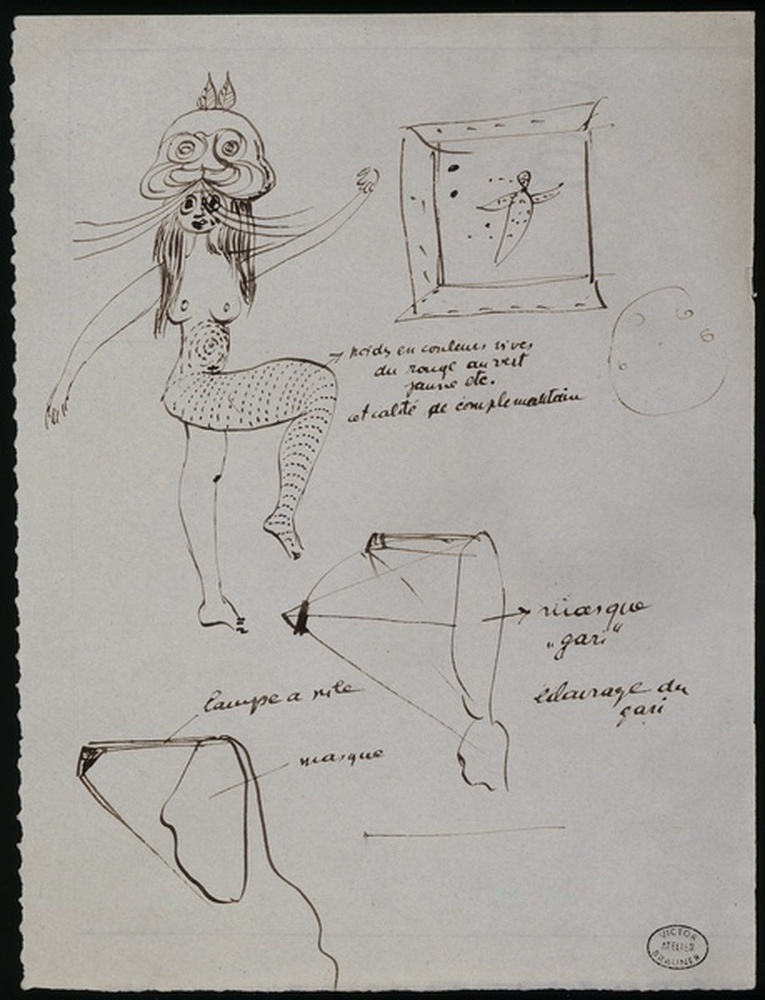 poids en couleurs vives
du rouge au vert
jaune etc.
et calité de complémentair
masque
"gari"
éclairage du
gari
lampe a pile
masque
VICTOR
ATELIER
BRAUNER